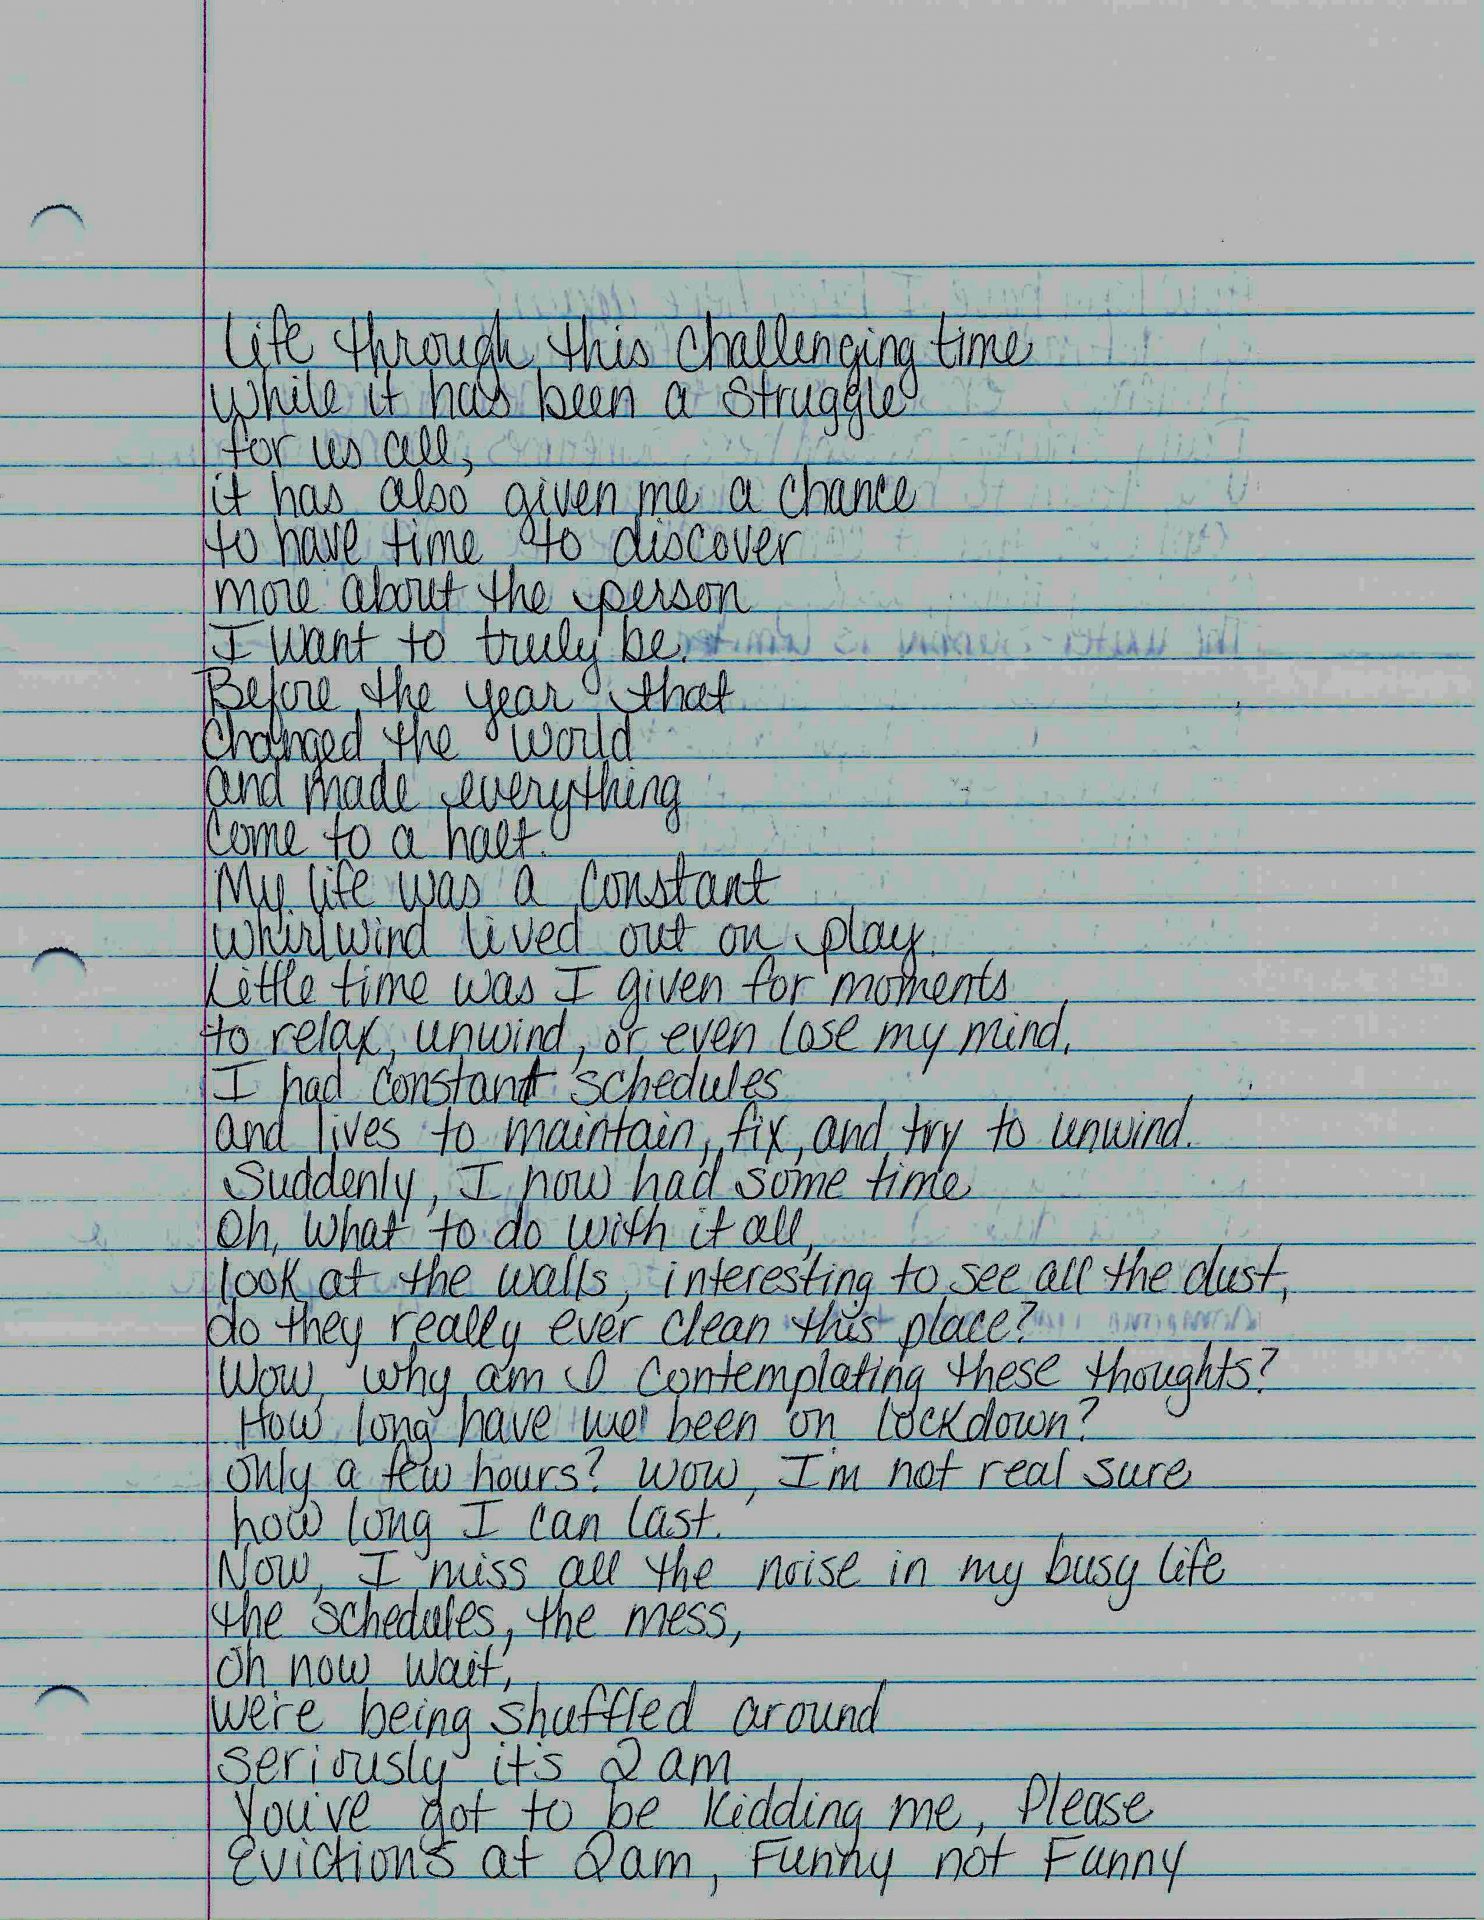 Life through this challenging time
while it has been a struggle
for us all,
it has also given me a chance
to have time to discover
more about the person
I want to truly be.
Before the year that
changed the world
and made everything
come to a halt.
My life was a constant
whirlwind lived out on play.
Little time was I given for moments
to relax, unwind, or even lose my mind.
I had constant schedules
and lives to maintain, fix, and try to unwind.
Suddenly, I now had some time
Oh, what to do with it all,
look at the walls, interesting to see all the dust,
do they really ever clean this place?
Wow, why am I contemplating these thoughts?
How long have we been on lockdown?
only a few hours? Wow, I'm not real sure
how long I can last.
Now, I miss all the noise in my busy life
the schedules, the mess,
oh now wait,
we're being shuffled around
seriously it's 2am
You've got to be kidding me, Please
Evictions at 2am, Funny not Funny